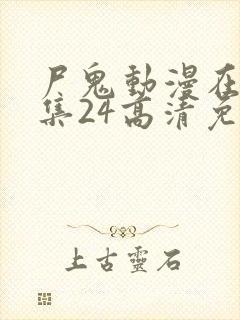 尸鬼動漫在
集24高清免
上古靈石